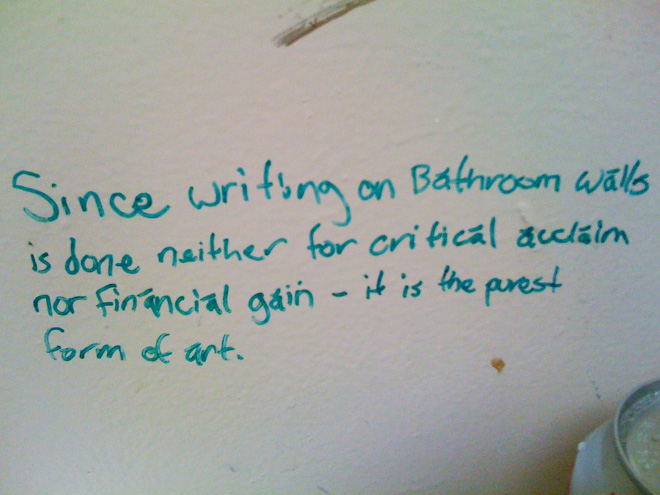 Since writing on Bathroom walls
is done neither for critical acclaim
nor financial gain - it is the purest
form of art.